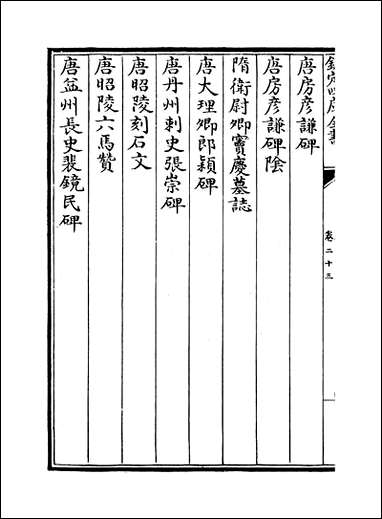 欽定四庫全書
卷二十三
唐房彦謙碑
唐房彦謙碑陰
隋衛尉卿竇慶墓誌
唐大理卿郎穎碑
唐丹州刺史張崇碑
唐昭陵刻石文
唐昭陵六馬贊
唐益州長史裴鏡民碑